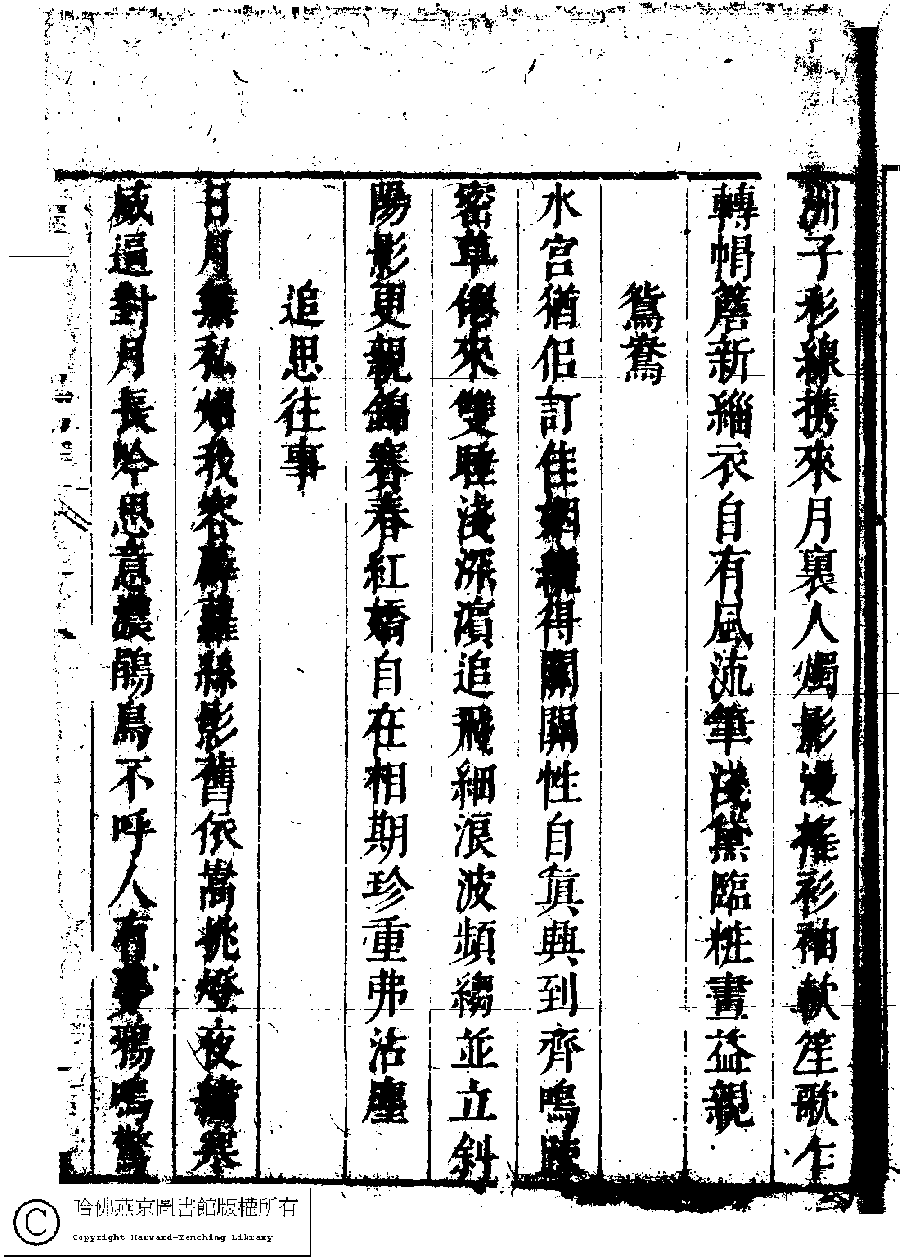 洲子彩線携來月裏人燭影漫搖衫袖軟笙歌乍
轉帽簷新緇衣自有風流筆淺黛臨粧畫益親
鴛鴦
水宮猶侣訂佳姻 得關關性自真興到齊鳴
密草倦來雙睡淺深濱追飛細浪波頻縐並立斜
陽影更親錦 春紅嬌自在相期珍重弗沾塵
追思往事
日月無私炤我容薜蘿絲影舊依嵩挑燈夜 寒
威逼對月長吟思意濃鵑鳥不呼人有夢鴉鳴驚
哈佛燕京圖書館版權所有
Copyright Harvard-Yenching Library